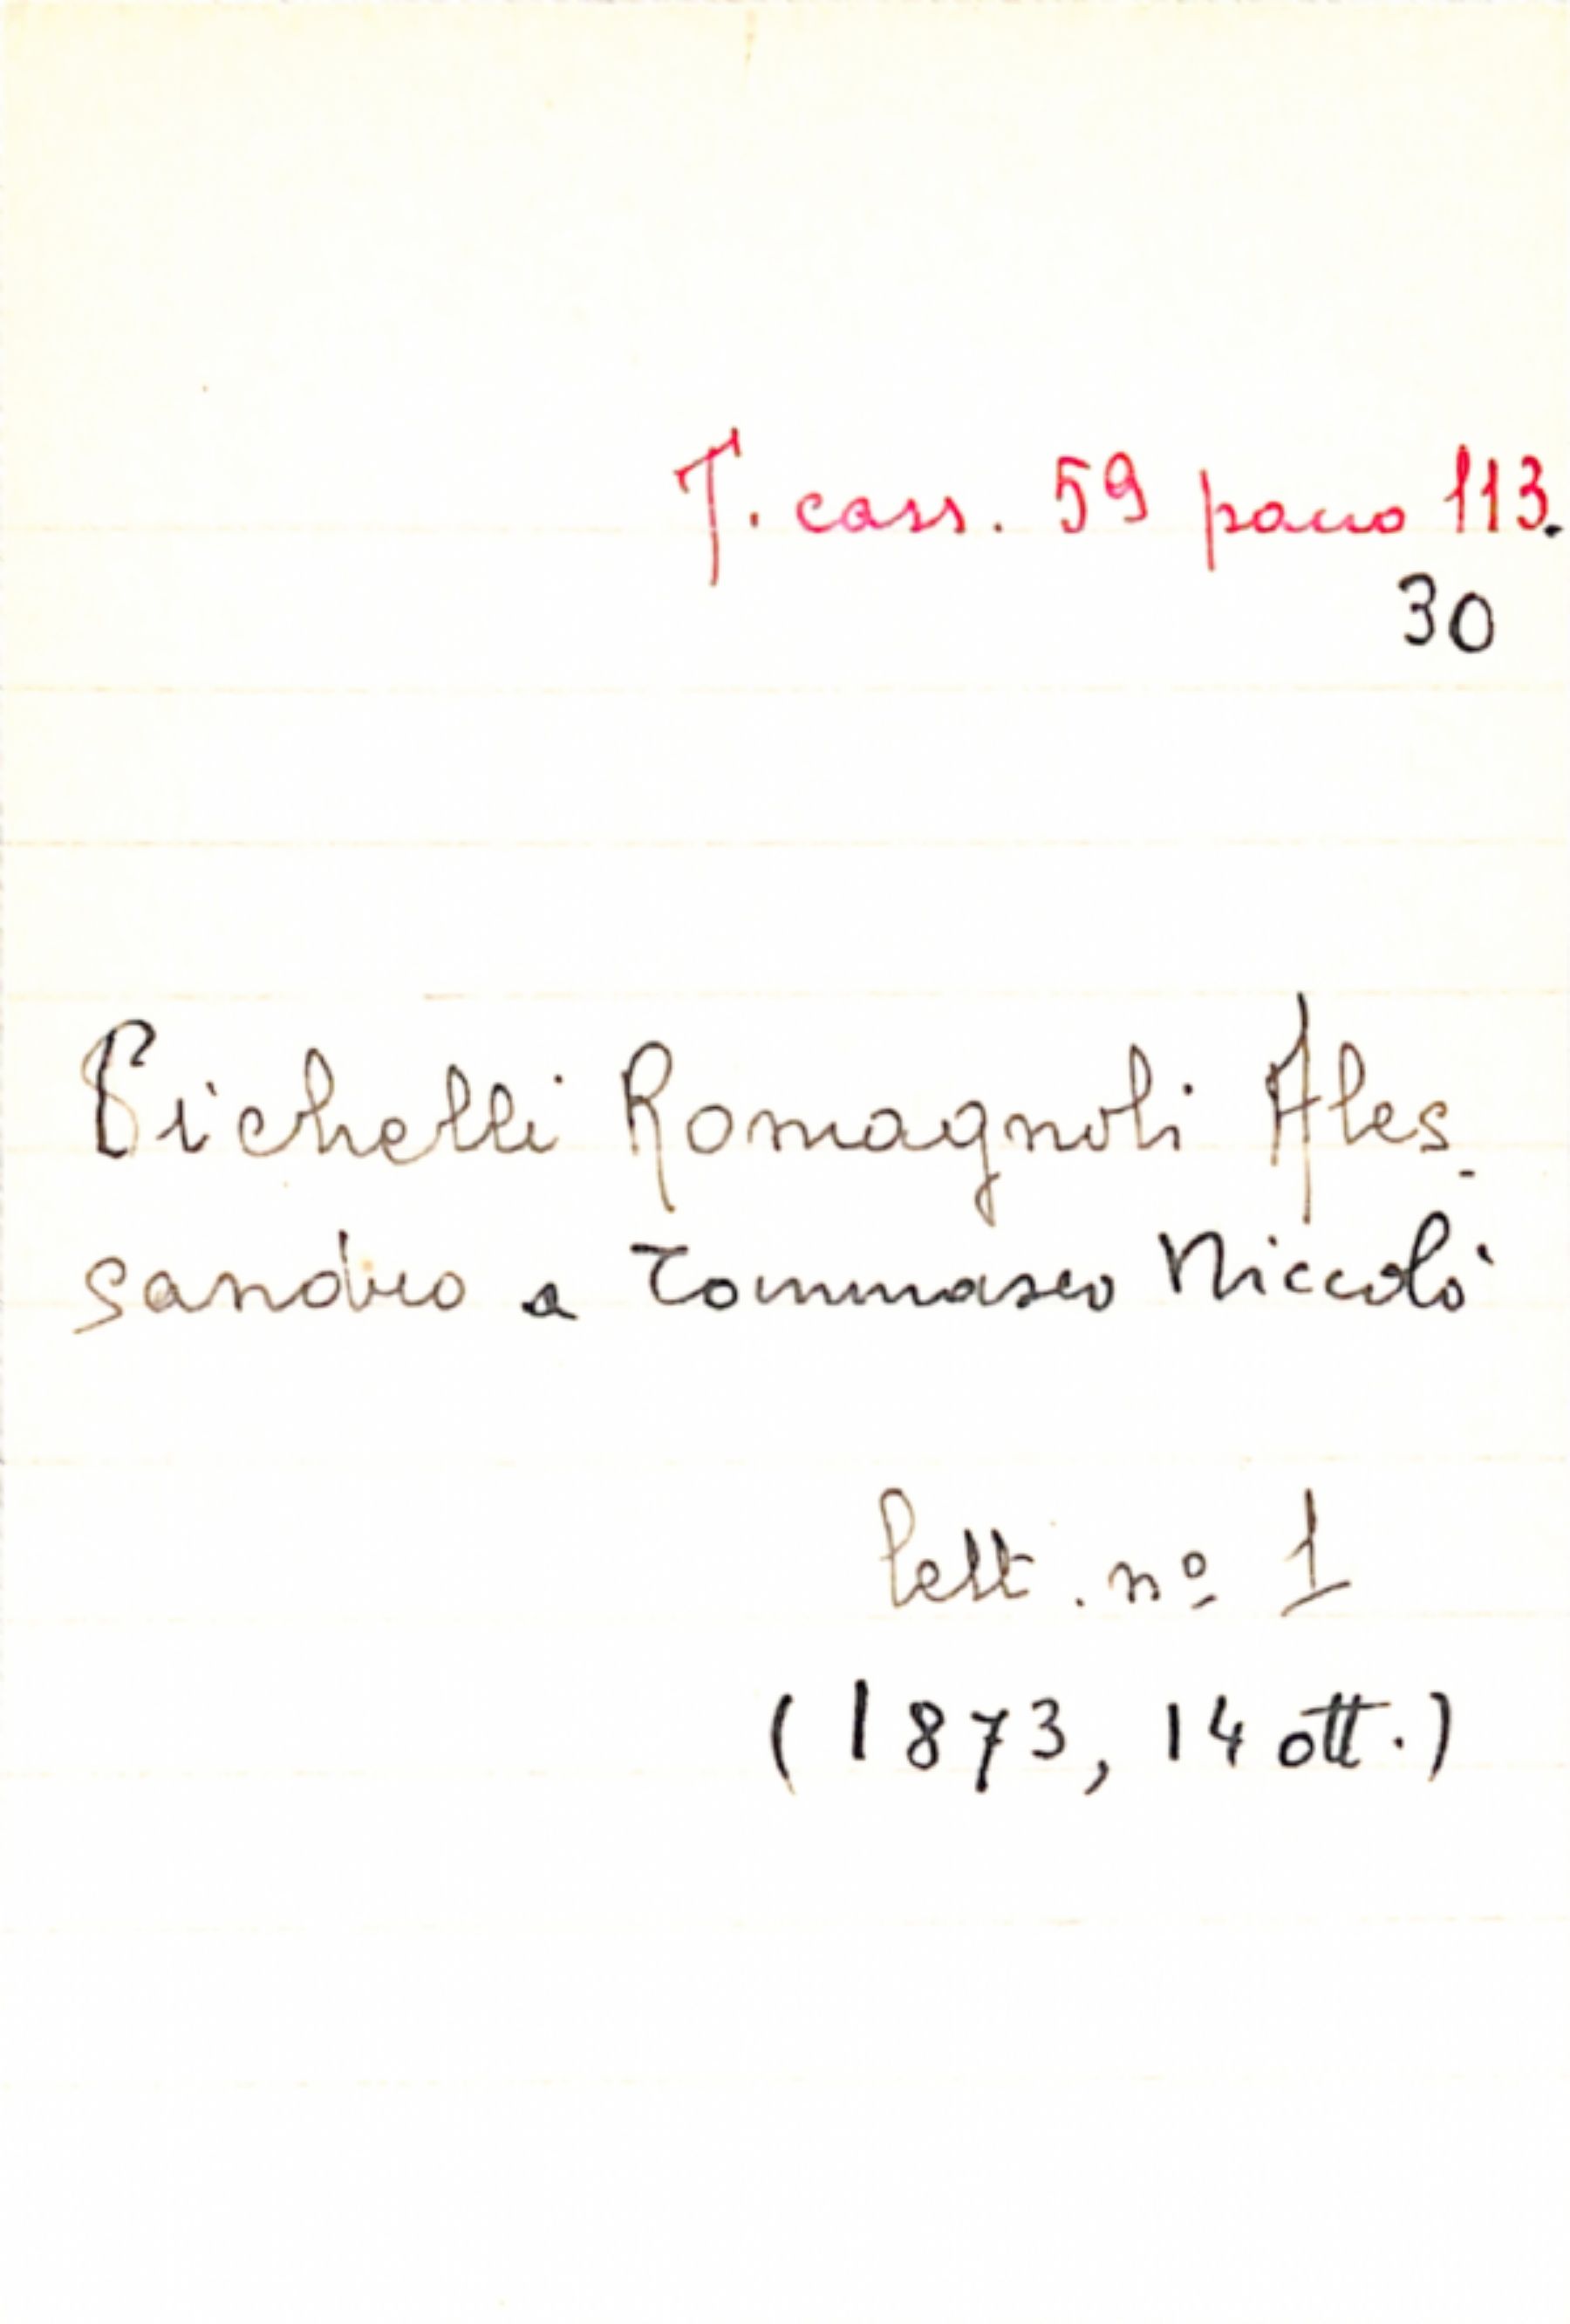 T. cass. 59 pacco 113.
30
Pichelli Romagnoli Ales-
sandro a Tommaseo Niccolò
lett. nº 1
(1873, 14 ott.)